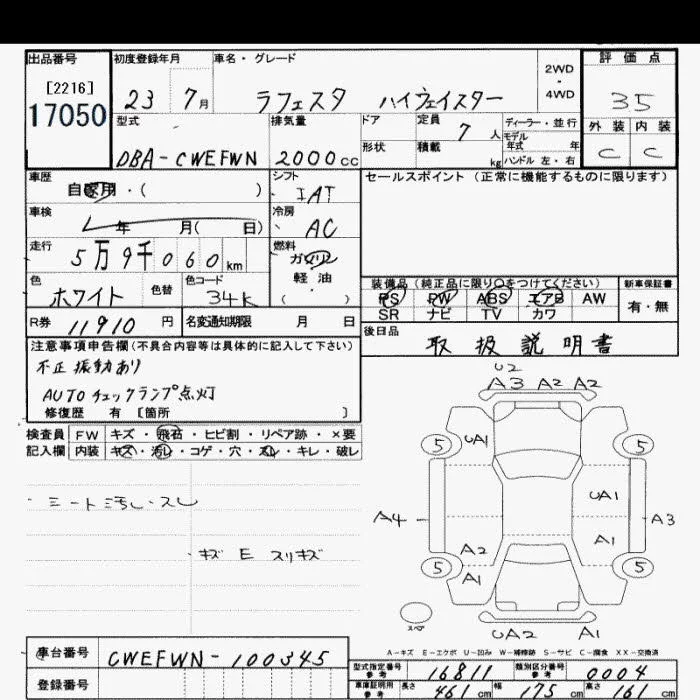 出品番号
[2216]
17050
初度登録年月
23 7月
車名・グレード
ラフェスタ ハイウェイスター
2WD
・
4WD
評価点
35
外装 内装
C C
型式
DBA-CWEFWN
排気量
2000cc
ドア
形状
定員
7人
積載
kg
ディーラー・並行
モデル年式 年
ハンドル 左・右
車歴
自家用・( )
シフト
IAT
セールスポイント(正常に機能するものに限ります)
車検
年 月( 日)
冷房
AC
走行
5万9千060km
燃料
ガソリン
軽・油
( )
色
ホワイト
色替
色コード
34K
装備品(純正品に限り○をつけてください)
PS PW ABS エアB AW
SR ナビ TV カワ
新車保証書
有・無
R券
11910円
名変通知期限 月 日
後日品
取扱説明書
注意事項申告欄(不具合内容等は具体的に記入して下さい)
不正振動あり
AUTOチェックランプ点灯
修復歴 有 [箇所 ]
検査員 FW キズ・飛石・ヒビ割・リペア跡・×要
記入欄 内装 キズ・汚レ・コゲ・穴・スレ・キレ・破レ
シート汚レ・スレ
キズ E スリキズ
U2
A3 A2 A2
5 UA1 5
UA1
A4 A3
A2 A1
5 A1 5
スペ
UA2 A1
A-キズ E-エクボ U-凹み W-補修跡 S-サビ C-腐食 XX-交換済
車台番号
CWEFWN-100345
登録番号
型式指定番号
参考
16811
類別区分番号
参考
0004
車庫証明用
参考
長さ 461cm 幅 175cm 高さ 161cm